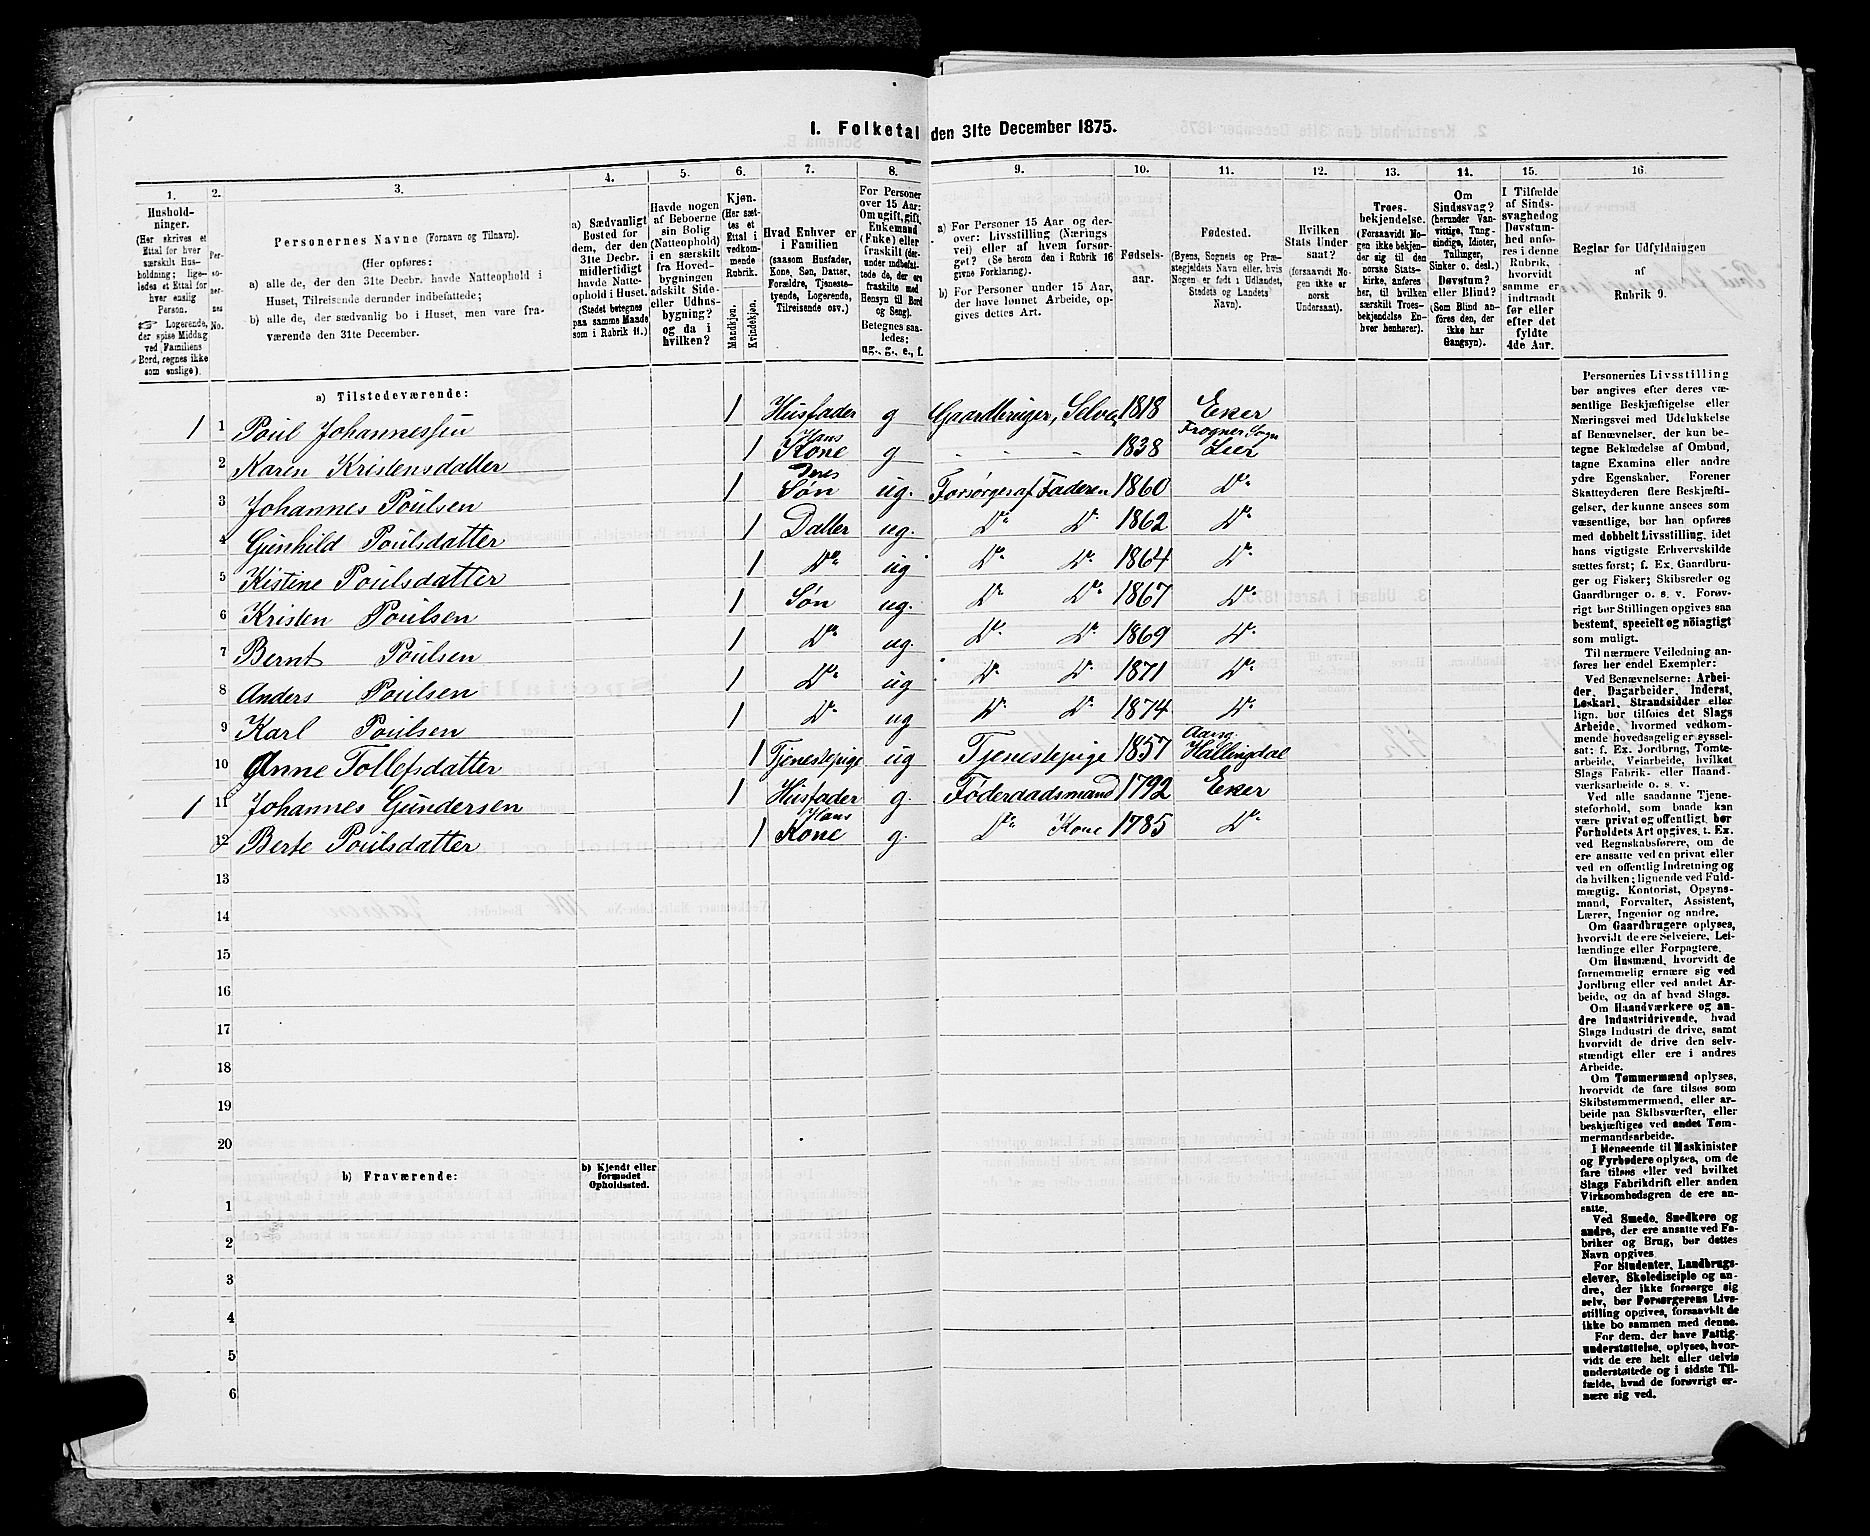 1. Folketal den 31te December 1875.
1. 2. 3. 4. 5. 6. 7. 8. 9. 10. 11. 12. 13. 14. 15. 16.
Hushold-
ninger.
(Her skrives et
Ettal for hver
særskilt Hus-
holdning; lige-
ledes et Ettal for
hver enslig
Person.
☞ Logerende,
der spise Middag
ved Familiens
Bord, regnes ikke
som enslige).
Per-
so-
ner-
nes
No.
Personernes Navne (Fornavn og Tilnavn).
(Her opføres:
a) alle de, der den 31te Decbr. havde Natteophold i
Huset, Tilreisende derunder indbefattede;
b) alle de, der sædvanlig bo i Huset, men vare fra-
værende den 31te December.
a) Sædvanligt
Bosted for
dem, der den
31te Decbr.
midlertidigt
havde Natte-
ophold i Huset.
(Stedet betegnes
paa samme Maade
som i Rubrik 11.)
Havde nogen
af Beboerne
sin Bolig
(Natteophold)
i en særskilt
fra Hoved-
bygningen
adskilt Side-
eller Udhus-
bygning?
og da i
hvilken?
Kjøn.
(Her sæt-
tes et
Ettal i
vedkom-
mende
Rubrik.
Mandkjøn.
Kvindekjøn.
Hvad Enhver er
i Familien
(saasom Husfader,
Kone, Søn, Datter,
Forældre, Tjeneste-
tyende, Logerende,
Tilreisende osv.)
For Personer
over 15 Aar:
Om ugift, gift,
Enkemand
(Enke) eller
fraskilt (der-
under indbefat-
tede de, der ere
fraskilte med
Hensyn til Bord
og Seng).
Betegnes saa-
ledes:
ug., g., e., f.
a) For Personer 15 Aar og der-
over: Livsstilling (Nærings
vei) eller af hvem forsør-
get? (Se herom den i Rubrik 16
givne Forklaring).
b) For Personer under 15 Aar,
der have lønnet Arbeide, op-
gives dettes Art.
Fødsels-
aar.
Fødested.
(Byens, Sognets og Præ-
stegjeldets Navn eller, hvis
Nogen er født i Udlandet,
Stedets og Landets
Navn).
Hvilken
Stats Under-
saat?
(forsaavidt No-
gen ikke er
norsk
Undersaat).
Troes-
bekjendelse.
(Forsaavidt No-
gen ikke bekjen-
der sig til den
norske Stats-
kirke, anføres
her, til hvilken
særskilt Troes-
bekjendelse En-
hver henhører).
Om
Sindssvag?
(herunder Van-
vittige, Tung-
sindige, Idioter,
Tullinger,
Sinker o. desl.)
Døvstum?
eller Blind?
(Som Blind an-
føres den, der
ikke har
Gangsyn).
I Tilfælde
af Sinds-
svaghed og
Døvstum-
hed anfø-
res i denne
Rubrik,
hvorvidt
samme er
indtraadt
før eller
efter det
fyldte
4de Aar.
Reglar for Udfyldningen
af
Rubrik 9.
a) Tilstedeværende:
1 1 Poul Johannessen 1 Husfader g Gaardbruger, Selve 1818 Eker
2 Karen Kristensdatter 1 Hans Kone g - - - 1838 Frogner Sogn Lier
3 Johannes Poulsen 1 Deres Søn ug. Forsørges af Faderen 1860 Do
4 Gunhild Poulsdatter 1 Datter ug. Do Do 1862 Do
5 Kistine Poulsdatter 1 Do ug Do Do 1864 Do
6 Kristen Poulsen 1 Søn ug. Do Do 1867 Do
7 Bernt Poulsen 1 Do ug. Do Do 1869 Do
8 Anders Poulsen 1 Do ug Do Do 1871 Do
9 Karl Poulsen 1 Do ug Do Do 1874 Do
10 Anne Tollefsdatter 1 Tjenestepige ug Tjenestepige 1857 Hallingdal
1 11 Johannes Gundersen 1 Husfader g Föderaadsmand 1792 Eker
12 Berte Poulsdatter 1 Hans Kone g. Do Kone 1785 Do
13
14
15
16
17
18
19
20
b) Fraværende:
b) Kjendt eller
formodet
Opholdssted.
1
2
3
4
5
6
Personernes Livsstilling
bør angives efter deres væ-
sentlige Beskjæftigelse eller
Næringsvei med Udelukkelse
af Benævnelser, der kun be-
tegne Beklædelse af Ombud,
tagne Examina eller andre
ydre Egenskaber. Forener
Skatteyderen flere Beskjæfti-
gelser, der kunne ansees som
væsentlige, bør han opføres
med dobbelt Livsstilling, idet
hans vigtigste Erhvervskilde
sættes først; f. Ex. Gaardbru-
ger og Fisker; Skibsreder og
Gaardbruger o. s. v. Forøv-
rigt bør Stillingen opgives saa
bestemt, specielt og nöiagtigt
som muligt.
Til nærmere Veiledning an-
føres her endel Exempler:
Ved Benævnelserne: Arbei-
der, Dagarbeider, Inderst,
Løskarl, Strandsidder eller
lign. bør tilføies det Slags
Arbeide, hvormed vedkom-
mende hovedsagelig er syssel-
sat: f. Ex. Jordbrug, Tomte-
arbeide, Veiarbeide, hvilket
Slags Fabrik- eller Haand-
værksarbeide o. s. v.
Ved alle saadanne Tjene-
steforhold, som baade kan
være privat og offentligt, bør
Forholdets Art opgives, t. Ex.
ved Regnskabsførere, om de
ere ansatte ved en privat eller
ved en offentlig Indretning og
da hvilken; lignende ved Fuld-
mægtig, Kontorist, Opsyns-
mand, Forvalter, Assistent,
Lærer, Ingeniør og andre.
Om Gaardbrugere oplyses,
hvorvidt de ere Selveiere, Lei-
lændinge eller Forpagtere.
Om Husmænd, hvorvidt de
fornemmelig ernære sig ved
Jordbrug eller ved andet Ar-
beide, og da af hvad Slags.
Om Haandværkere og an-
dre Industridrivende, hvad
Slags Industri de drive, samt
hvorvidt de drive den selv-
stændigt eller ere i andres
Arbeide.
Om Tømmermænd oplyses,
hvorvidt de fare tilsøs som
Skibstømmermænd, eller ar-
beide paa Skibsværfter, eller
beskjæftiges ved andet Tøm-
mermandsarbeide.
I Henseende til Maskinister
og Fyrbødere oplyses, om de
fare tilsøs eller ved hvilket
Slags Fabrikdrift eller anden
Virksomhedsgren de ere an-
satte.
Ved Smede, Snedkere og
andre, der ere ansatte ved Fa-
briker og Brug, bør dettes
Navn opgives.
For Studenter, Landbrugs-
elever, Skoledisciple og an-
dre, der ikke forsørge sig
selv, bør Forsørgerens Livs-
stilling opgives, forsaavidt de
ikke bo sammen med denne.
For dem, der have Fattig-
understøttelse, oplyses, hvor-
vidt de ere helt eller delvis
understøttede og i sidste Til-
fælde, hvad de forøvrigt er-
nære sig ved.